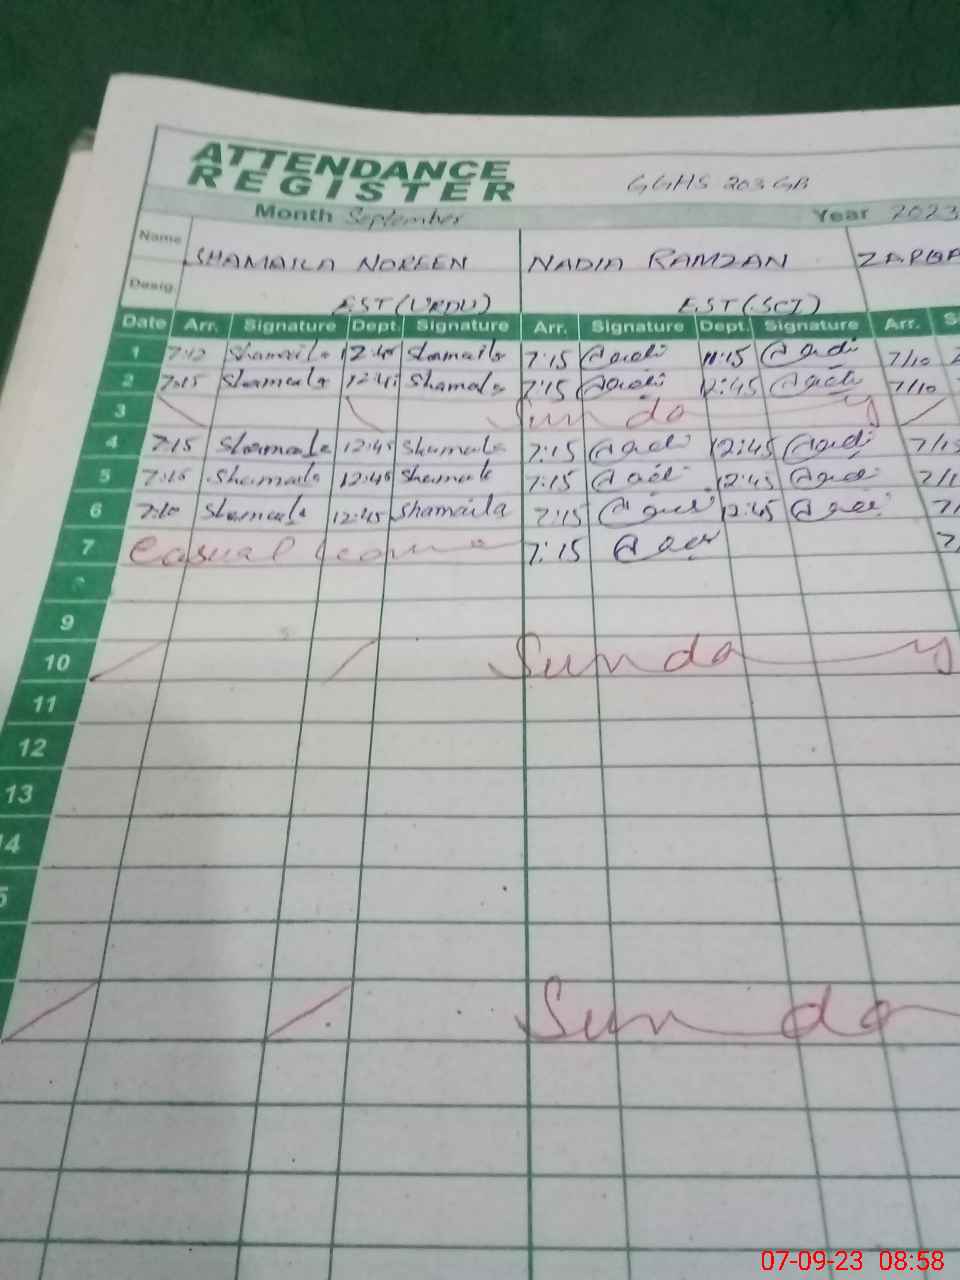 ATTENDANCE
REGISTER
GGHS 203 GB
Month September Year 2023
Name SHAMAILA NOREEN NADIA RAMZAN
Desig. EST (URDU) EST (SCI)
Date Arr. Signature Dept. Signature Arr. Signature Dept. Signature Arr.
1 7:12 Shamaila 12:45 Shamaila 7:15 11:15 7/10
2 7:15 Shamaila 12:45 Shamaila 7:15 12:45 7/10
3 Sunday
4 7:15 Shamaila 12:45 Shamaila 7:15 12:45
5 7:15 Shamaila 12:45 Shamaila 7:15 12:45
6 7:10 Shamaila 12:45 Shamaila 7:15 12:45
7 Casual leave 7:15
8
9
10 Sunday
11
12
13
Sunda
07-09-23 08:58